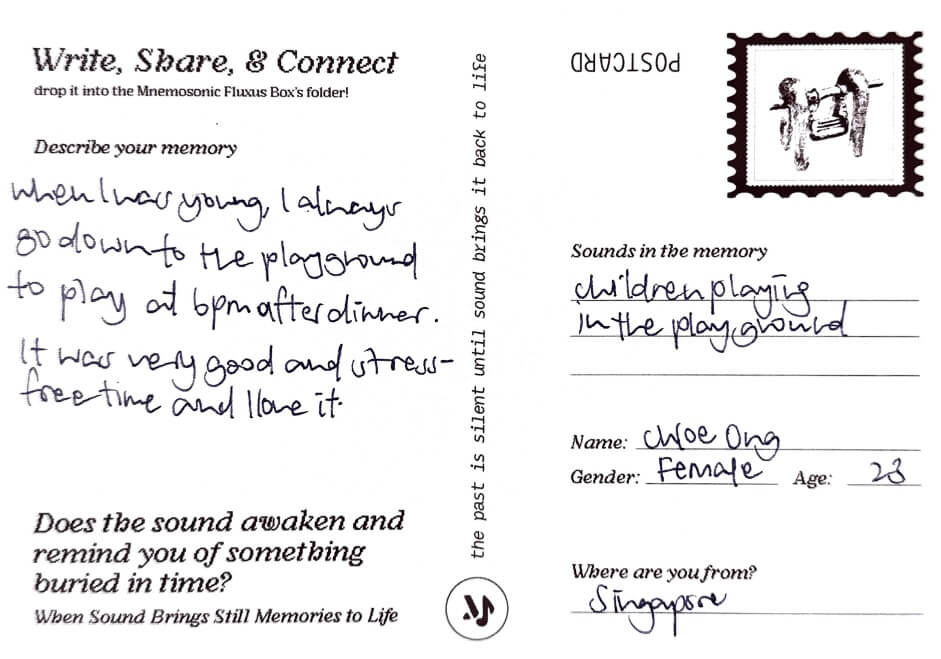 Write, Share, & Connect
drop it into the Mnemosonic Fluxus Box's folder!
Describe your memory
when I was young, I always
go down to the playground
to play at 6pm after dinner.
It was very good and stress-
free time and I love it.
Does the sound awaken and
remind you of something
buried in time?
When Sound Brings Still Memories to Life
the past is silent until sound brings it back to life
POSTCARD
Sounds in the memory
children playing
in the playground
Name: Chloe Ong
Gender: Female Age: 23
Where are you from?
Singapore